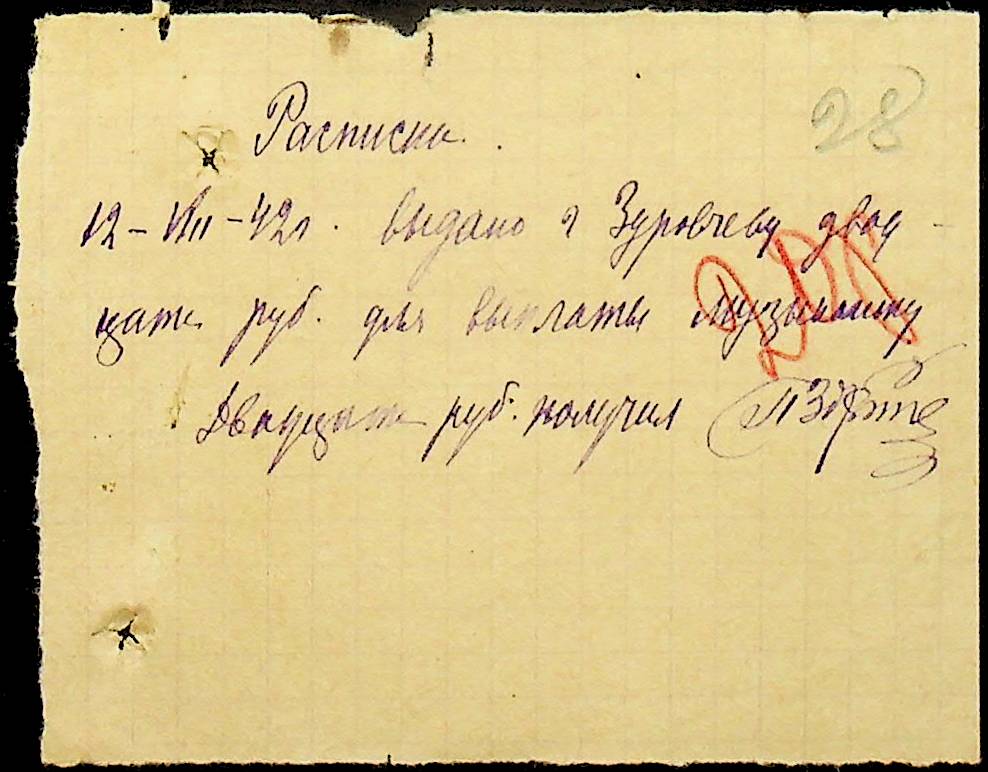 28
Расписка.
12-VIII-42г. выдано г Зуровчеву двад-
цать руб. для выплаты музыканту
Двадцать руб. получил